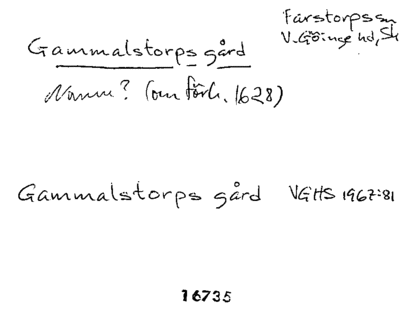 Farstorps sn
V. Göinge hd, Sk
Gammalstorps gård
Namn? (om förh. 1628)
Gammalstorps gård VGHS 1967:81
16735